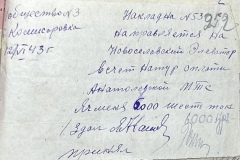 общество №3
Комисоровка
12/VI 43 г
Накладна № 53
952
направляется на
Новоселовский Элеватор
в счет Натур оплаты
Анатольевской МТС
Ячменя 6000 шесть тонн
6000 кгр
Сдал
принял